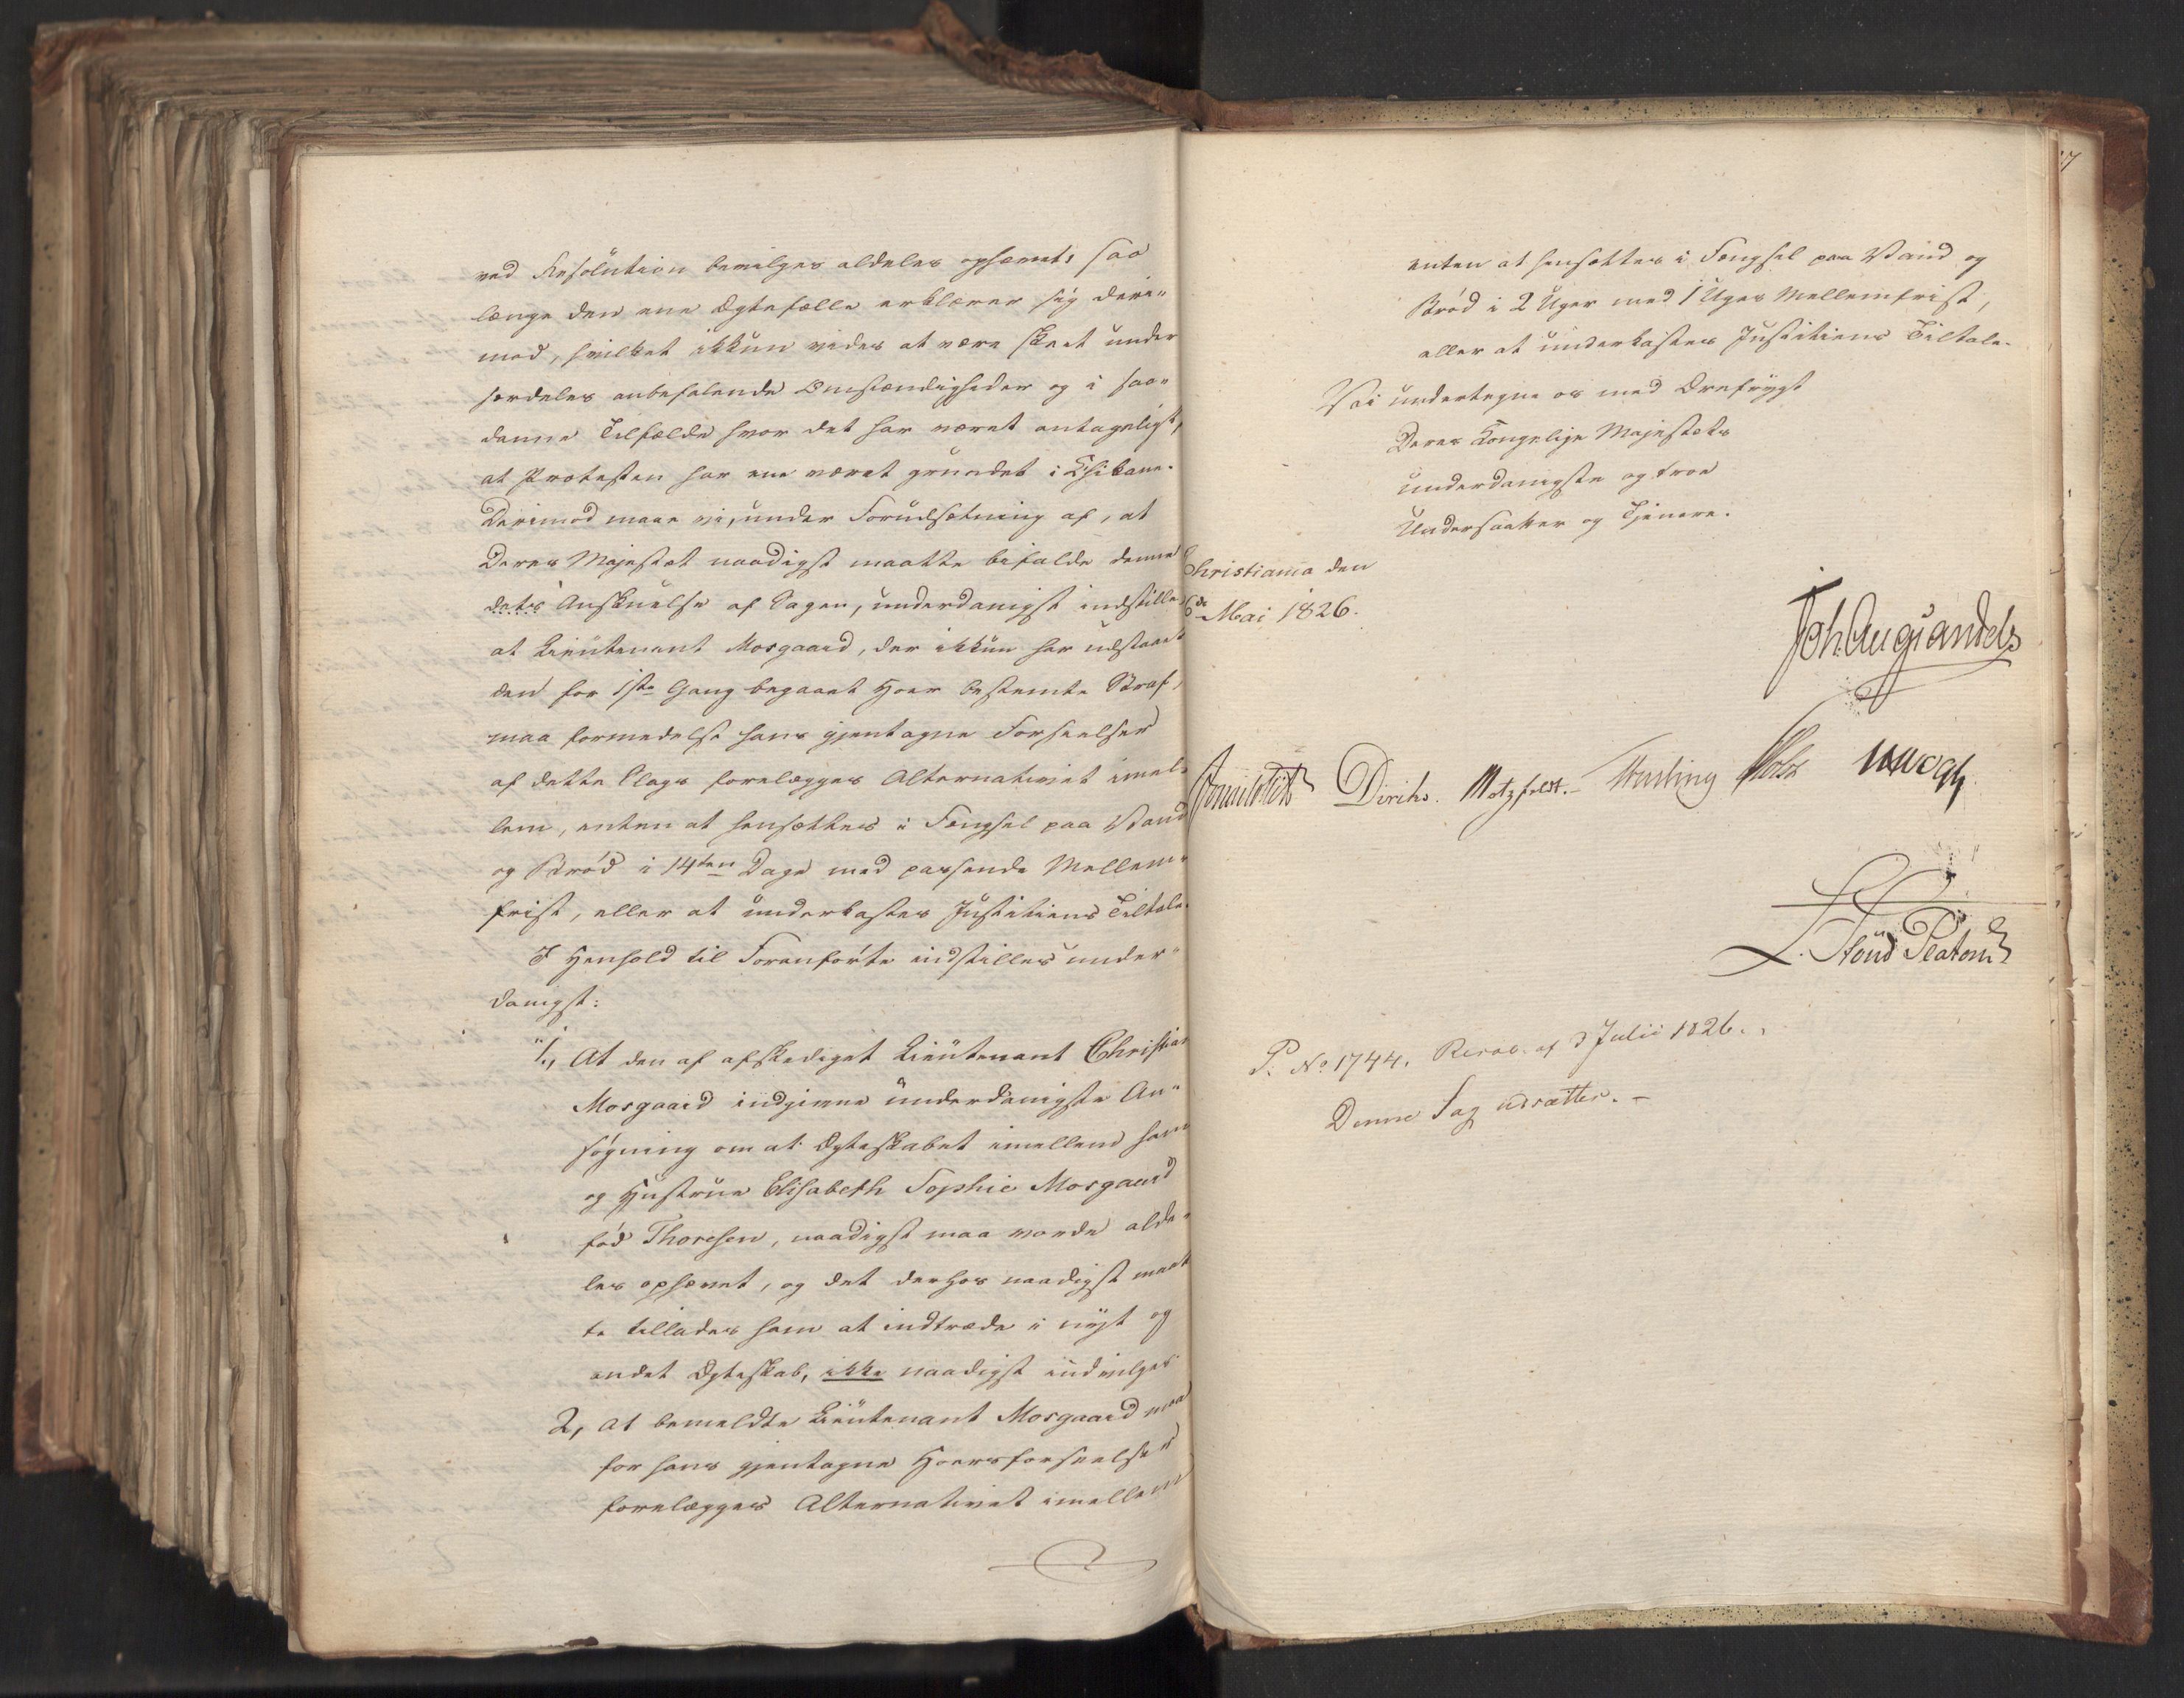 ved Resolution bevilges aldeles ophævet, saa
længe den ene Ægtefælle erklærer sig deri-
mod, hvilket ikkun vides at være skeet under
særdeles anbefalende Omstændigheder og i saa-
danne Tilfælde hvor det har været antageligt,
at Protesten har ene været grundet i Chikane.
Derimod maae vi, under Forudsætning af, at
Deres Majestæt naadigst maatte bifalde denne
dets Anskuelse af Sagen, underdanigst indstille,
at Lieutenant Mosgaard, der ikkun har udstaaet
den for 1ste Gang begaaet Hoer bestemte Straf,
maa formedelst hans gjentagne Forseelser
af dette Slags forelægges Alternativet imel-
lem, enten at hensættes i Fængsel paa Vand
og Brød i 14ten Dage med passende Mellem-
frist, eller at underkastes Justitiens Tiltale.
I Henhold til Foranførte indstilles under-
danigst:
1., At den af afskediget Lieutenant Christian
Mosgaard indgivne underdanigste An-
søgning om at Ægteskabet imellem ham
og Hustrue Elisabeth Sophie Mosgaard
fød Thoresen, naadigst maa vorde alde-
les ophævet, og det derhos naadigst maat
te tillades ham at indtræde i nyt og
andet Ægteskab, ikke naadigst indvilges
2, at bemeldte Lieutenant Mosgaard maa
for hans gjentagne Hoersforseelser
forelægges Alternativet imellem
enten at hensættes i Fængsel paa Vand og
Brød i 2 Uger med 1 Uges Mellemfrist,
eller at underkastes Justitiens Tiltale.
Vi undertegne os med Ærefrygt
Deres Kongelige Majestæts
underdanigste og troe
Undersaatter og Tjenere.
Christiania den
6de Mai 1826.
Joh. Aug. Sandels
Diriks. Motzfeldt. Holst
L. Stoud Platou
P. No 1744. Resol. af 3 Julii 1826.
Denne Sag udsættes. -